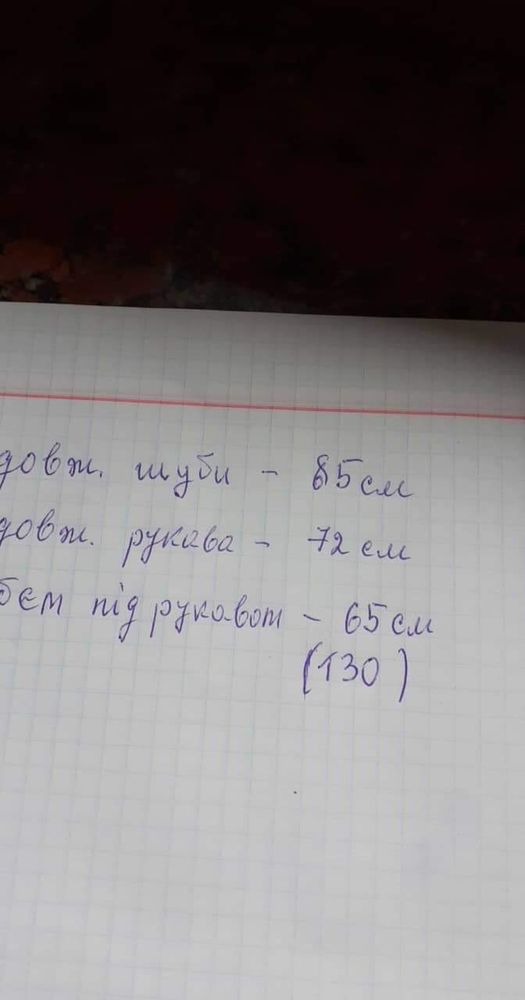 довж. шуби - 85см
довж. рукава - 72см
бєм під рукавом - 65см
(130)